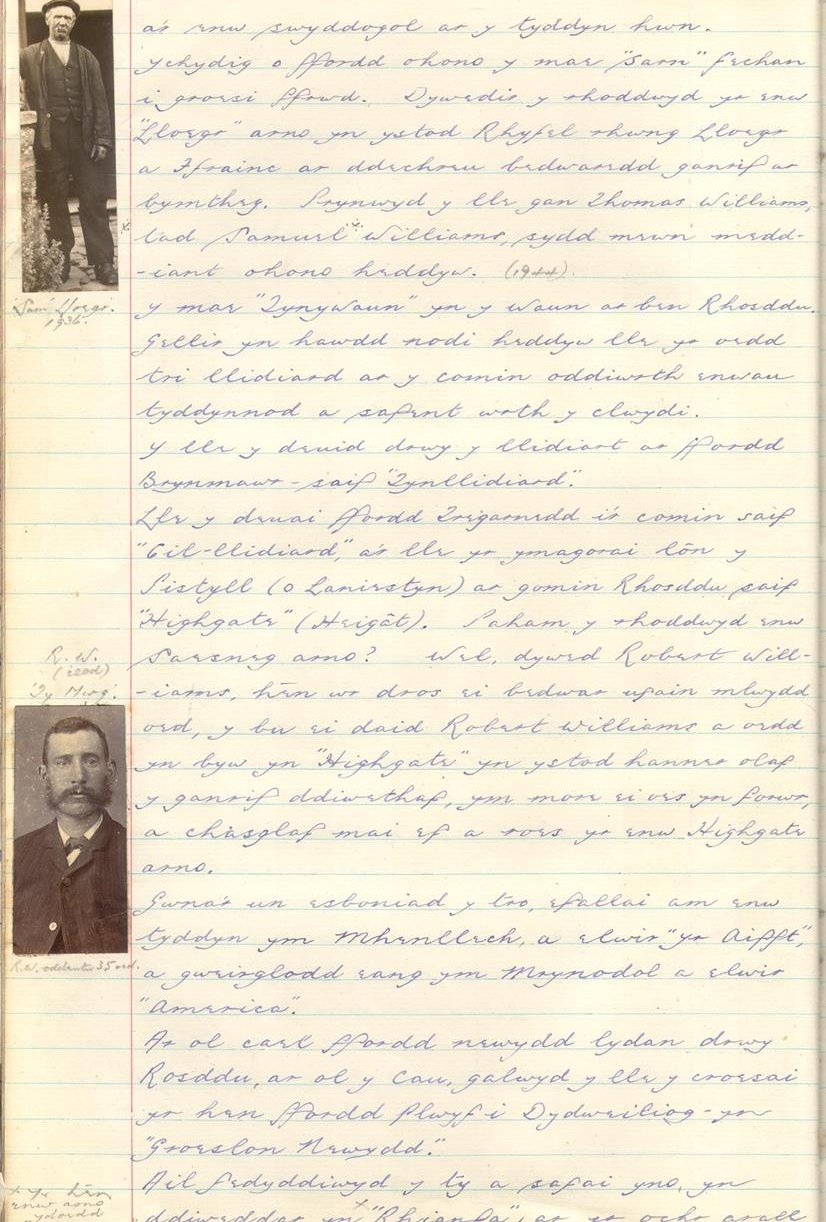 a'r enw swyddogol ar y tyddyn hwn.
Ychydig o ffordd ohono y mae "Sarn" fechan
i groesi ffrwd. Dywedir y rhoddwyd yr enw
"Lloegr" arno yn ystod Rhyfel rhwng Lloegr
a Ffrainc ar ddechreu bedwaredd ganrif ar
bymtheg. Prynwyd y lle gan Thomas Williams,
tad Samuel Williams, sydd mewn medd-
-iant ohono heddyw. (1944).
"Sam" Lloegr.
1936.
Y mae "Tynywaun" yn y waun ar ben Rhosddu.
Gellir yn hawdd nodi heddyw lle yr oedd
tri llidiard ar y comin oddiwrth enwau
tyddynnod a safent wrth y clwydi.
Y lle y deuid drwy y llidiart ar ffordd
Brynmawr - saif "Tynllidiard".
Lle y deuai ffordd Tregarnedd i'r comin saif
"Cil-llidiard", a'r lle yr ymagorai lôn y
Pistyll (o Laniestyn) ar gomin Rhosddu saif
"Highgate" (Heigât). Paham y rhoddwyd enw
Saesneg arno? Wel, dywed Robert Will-
-iams, hên wr dros ei bedwar ugain mlwydd
oed, y bu ei daid Robert Williams a oedd
yn byw yn "Highgate" yn ystod hanner olaf
y ganrif ddiwethaf, ym more ei oes yn forwr,
a chasglaf mai ef a roes yr enw Highgate
arno.
R. W.
Gwna'r un esboniad y tro, efallai am enw
tyddyn ym Mhenllech, a elwir "yr Aifft",
a gweirglodd eang ym Mrynodol a elwir
"America".
R.W. oddeutu 35 oed.
Ar ol cael ffordd newydd lydan drwy
Rosddu, ar ol y Cau, galwyd y lle y croesai
yr hen ffordd Plwyf i Dydweiliog - yn
"Groeslon Newydd".
Ail fedyddiwyd y ty a safai yno, yn
ddiweddar yn "Rhianfa", ar yr ochr arall
x Yr hên
enw arno
ydoedd